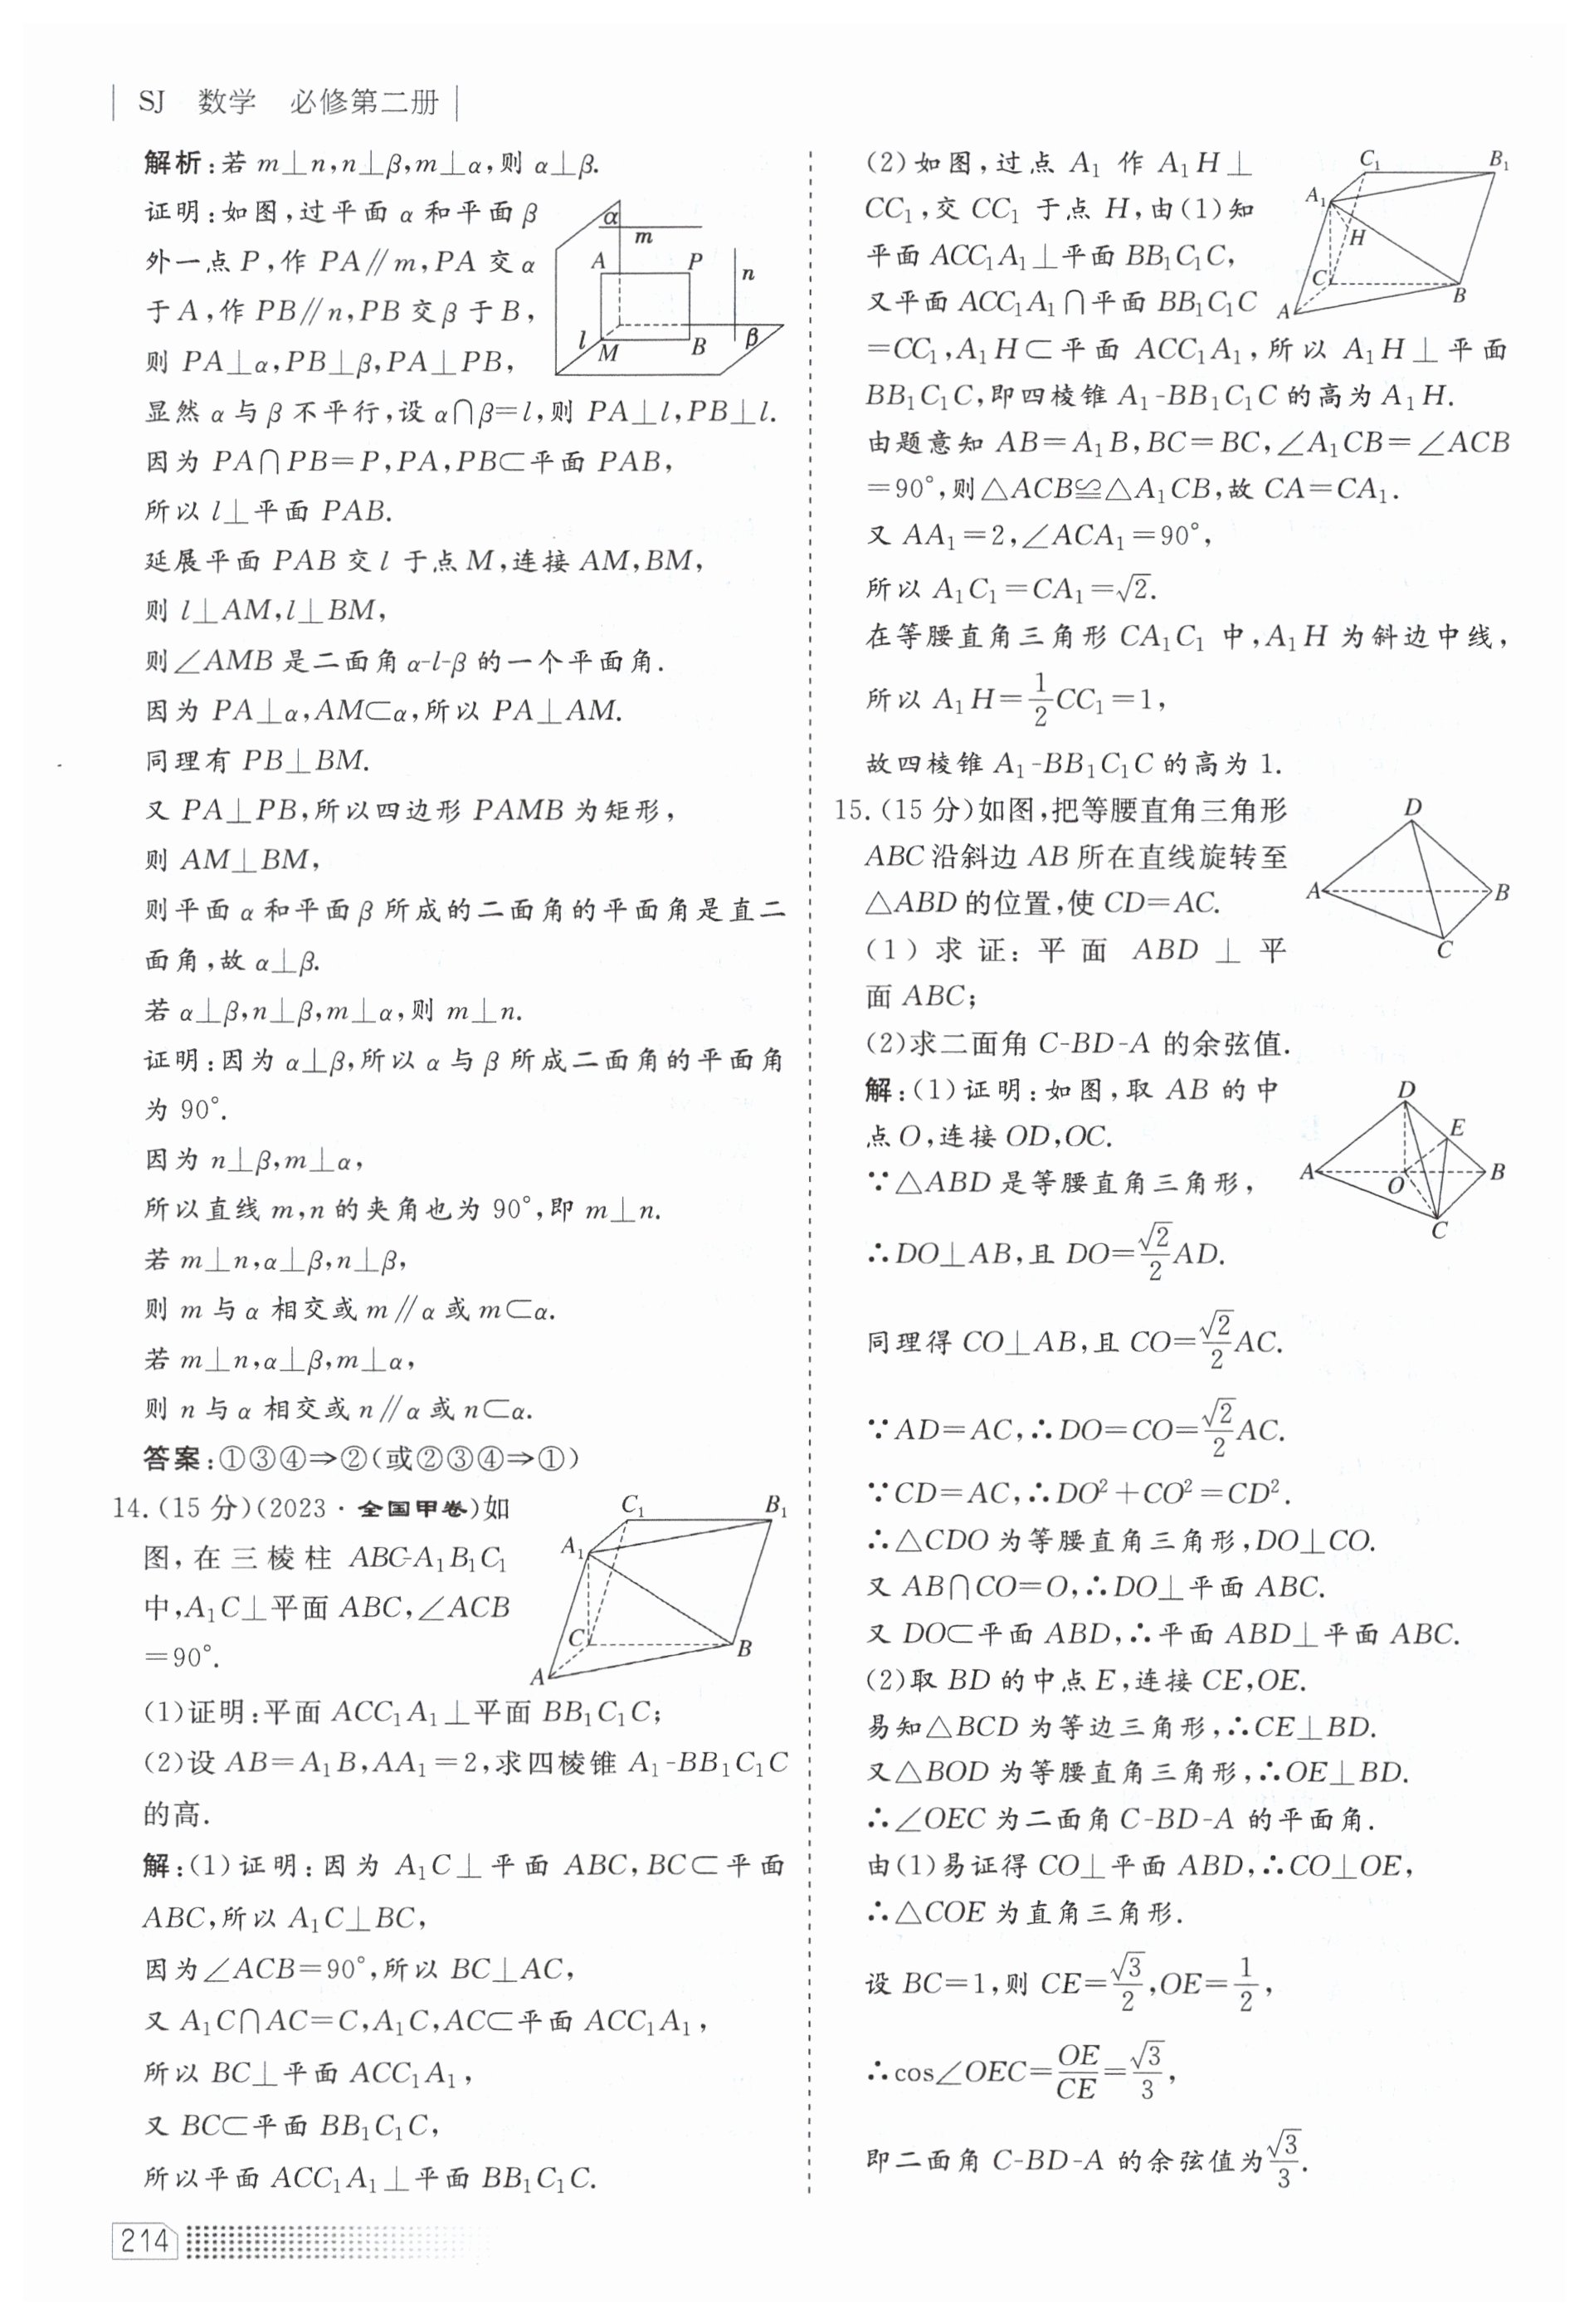 SJ 数学 必修第二册
解析:若 m⊥n,n⊥β,m⊥α,则 α⊥β.
证明:如图,过平面 α 和平面 β
外一点 P,作 PA∥m,PA 交 α
于 A,作 PB∥n,PB 交 β 于 B,
则 PA⊥α,PB⊥β,PA⊥PB,
α
m
A
P
n
l
M
B
β
显然 α 与 β 不平行,设 α∩β=l,则 PA⊥l,PB⊥l.
因为 PA∩PB=P,PA,PB⊂平面 PAB,
所以 l⊥平面 PAB.
延展平面 PAB 交 l 于点 M,连接 AM,BM,
则 l⊥AM,l⊥BM,
则∠AMB 是二面角 α-l-β 的一个平面角.
因为 PA⊥α,AM⊂α,所以 PA⊥AM.
同理有 PB⊥BM.
又 PA⊥PB,所以四边形 PAMB 为矩形,
则 AM⊥BM,
则平面 α 和平面 β 所成的二面角的平面角是直二
面角,故 α⊥β.
若 α⊥β,n⊥β,m⊥α,则 m⊥n.
证明:因为 α⊥β,所以 α 与 β 所成二面角的平面角
为 90°.
因为 n⊥β,m⊥α,
所以直线 m,n 的夹角也为 90°,即 m⊥n.
若 m⊥n,α⊥β,n⊥β,
则 m 与 α 相交或 m∥α 或 m⊂α.
若 m⊥n,α⊥β,m⊥α,
则 n 与 α 相交或 n∥α 或 n⊂α.
答案:①③④⇒②(或②③④⇒①)
14.(15 分)(2023·全国甲卷)如
图,在三棱柱 ABC-A₁B₁C₁
中,A₁C⊥平面 ABC,∠ACB
=90°.
C₁
B₁
A₁
C
B
A
(1)证明:平面 ACC₁A₁⊥平面 BB₁C₁C;
(2)设 AB=A₁B,AA₁=2,求四棱锥 A₁-BB₁C₁C
的高.
解:(1)证明:因为 A₁C⊥平面 ABC,BC⊂平面
ABC,所以 A₁C⊥BC,
因为∠ACB=90°,所以 BC⊥AC,
又 A₁C∩AC=C,A₁C,AC⊂平面 ACC₁A₁,
所以 BC⊥平面 ACC₁A₁,
又 BC⊂平面 BB₁C₁C,
所以平面 ACC₁A₁⊥平面 BB₁C₁C.
(2)如图,过点 A₁ 作 A₁H⊥
CC₁,交 CC₁ 于点 H,由(1)知
平面 ACC₁A₁⊥平面 BB₁C₁C,
又平面 ACC₁A₁∩平面 BB₁C₁C
C₁
B₁
A₁
H
C
B
A
=CC₁,A₁H⊂平面 ACC₁A₁,所以 A₁H⊥平面
BB₁C₁C,即四棱锥 A₁-BB₁C₁C 的高为 A₁H.
由题意知 AB=A₁B,BC=BC,∠A₁CB=∠ACB
=90°,则△ACB≌△A₁CB,故 CA=CA₁.
又 AA₁=2,∠ACA₁=90°,
所以 A₁C₁=CA₁=√2.
在等腰直角三角形 CA₁C₁ 中,A₁H 为斜边中线,
所以 A₁H=1/2CC₁=1,
故四棱锥 A₁-BB₁C₁C 的高为 1.
15.(15 分)如图,把等腰直角三角形
ABC 沿斜边 AB 所在直线旋转至
△ABD 的位置,使 CD=AC.
(1)求证:平面 ABD⊥平
面 ABC;
(2)求二面角 C-BD-A 的余弦值.
D
A
B
C
解:(1)证明:如图,取 AB 的中
点 O,连接 OD,OC.
∵△ABD 是等腰直角三角形,
∴DO⊥AB,且 DO=√2/2AD.
D
E
A
O
B
C
同理得 CO⊥AB,且 CO=√2/2AC.
∵AD=AC,∴DO=CO=√2/2AC.
∵CD=AC,∴DO²+CO²=CD².
∴△CDO 为等腰直角三角形,DO⊥CO.
又 AB∩CO=O,∴DO⊥平面 ABC.
又 DO⊂平面 ABD,∴平面 ABD⊥平面 ABC.
(2)取 BD 的中点 E,连接 CE,OE.
易知△BCD 为等边三角形,∴CE⊥BD.
又△BOD 为等腰直角三角形,∴OE⊥BD.
∴∠OEC 为二面角 C-BD-A 的平面角.
由(1)易证得 CO⊥平面 ABD,∴CO⊥OE,
∴△COE 为直角三角形.
设 BC=1,则 CE=√3/2,OE=1/2,
∴cos∠OEC=OE/CE=√3/3,
即二面角 C-BD-A 的余弦值为√3/3.
214